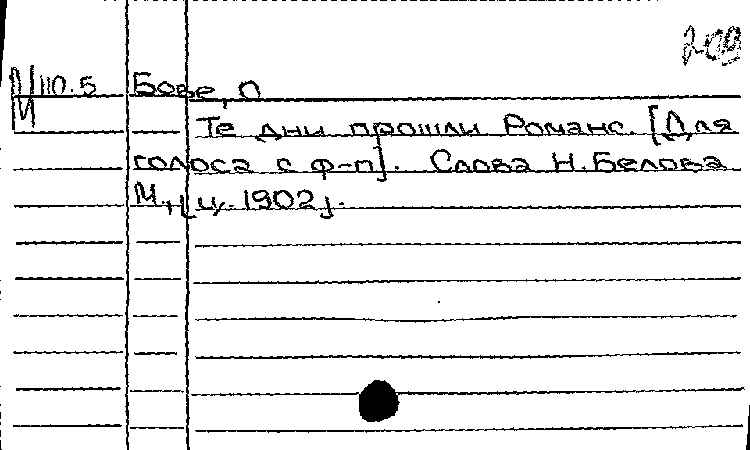 М 110.5 Бове, О
Те дни прошли Романс. [Для
голоса с ф-п]. Слова Н.Белова
М., [ц. 1902].